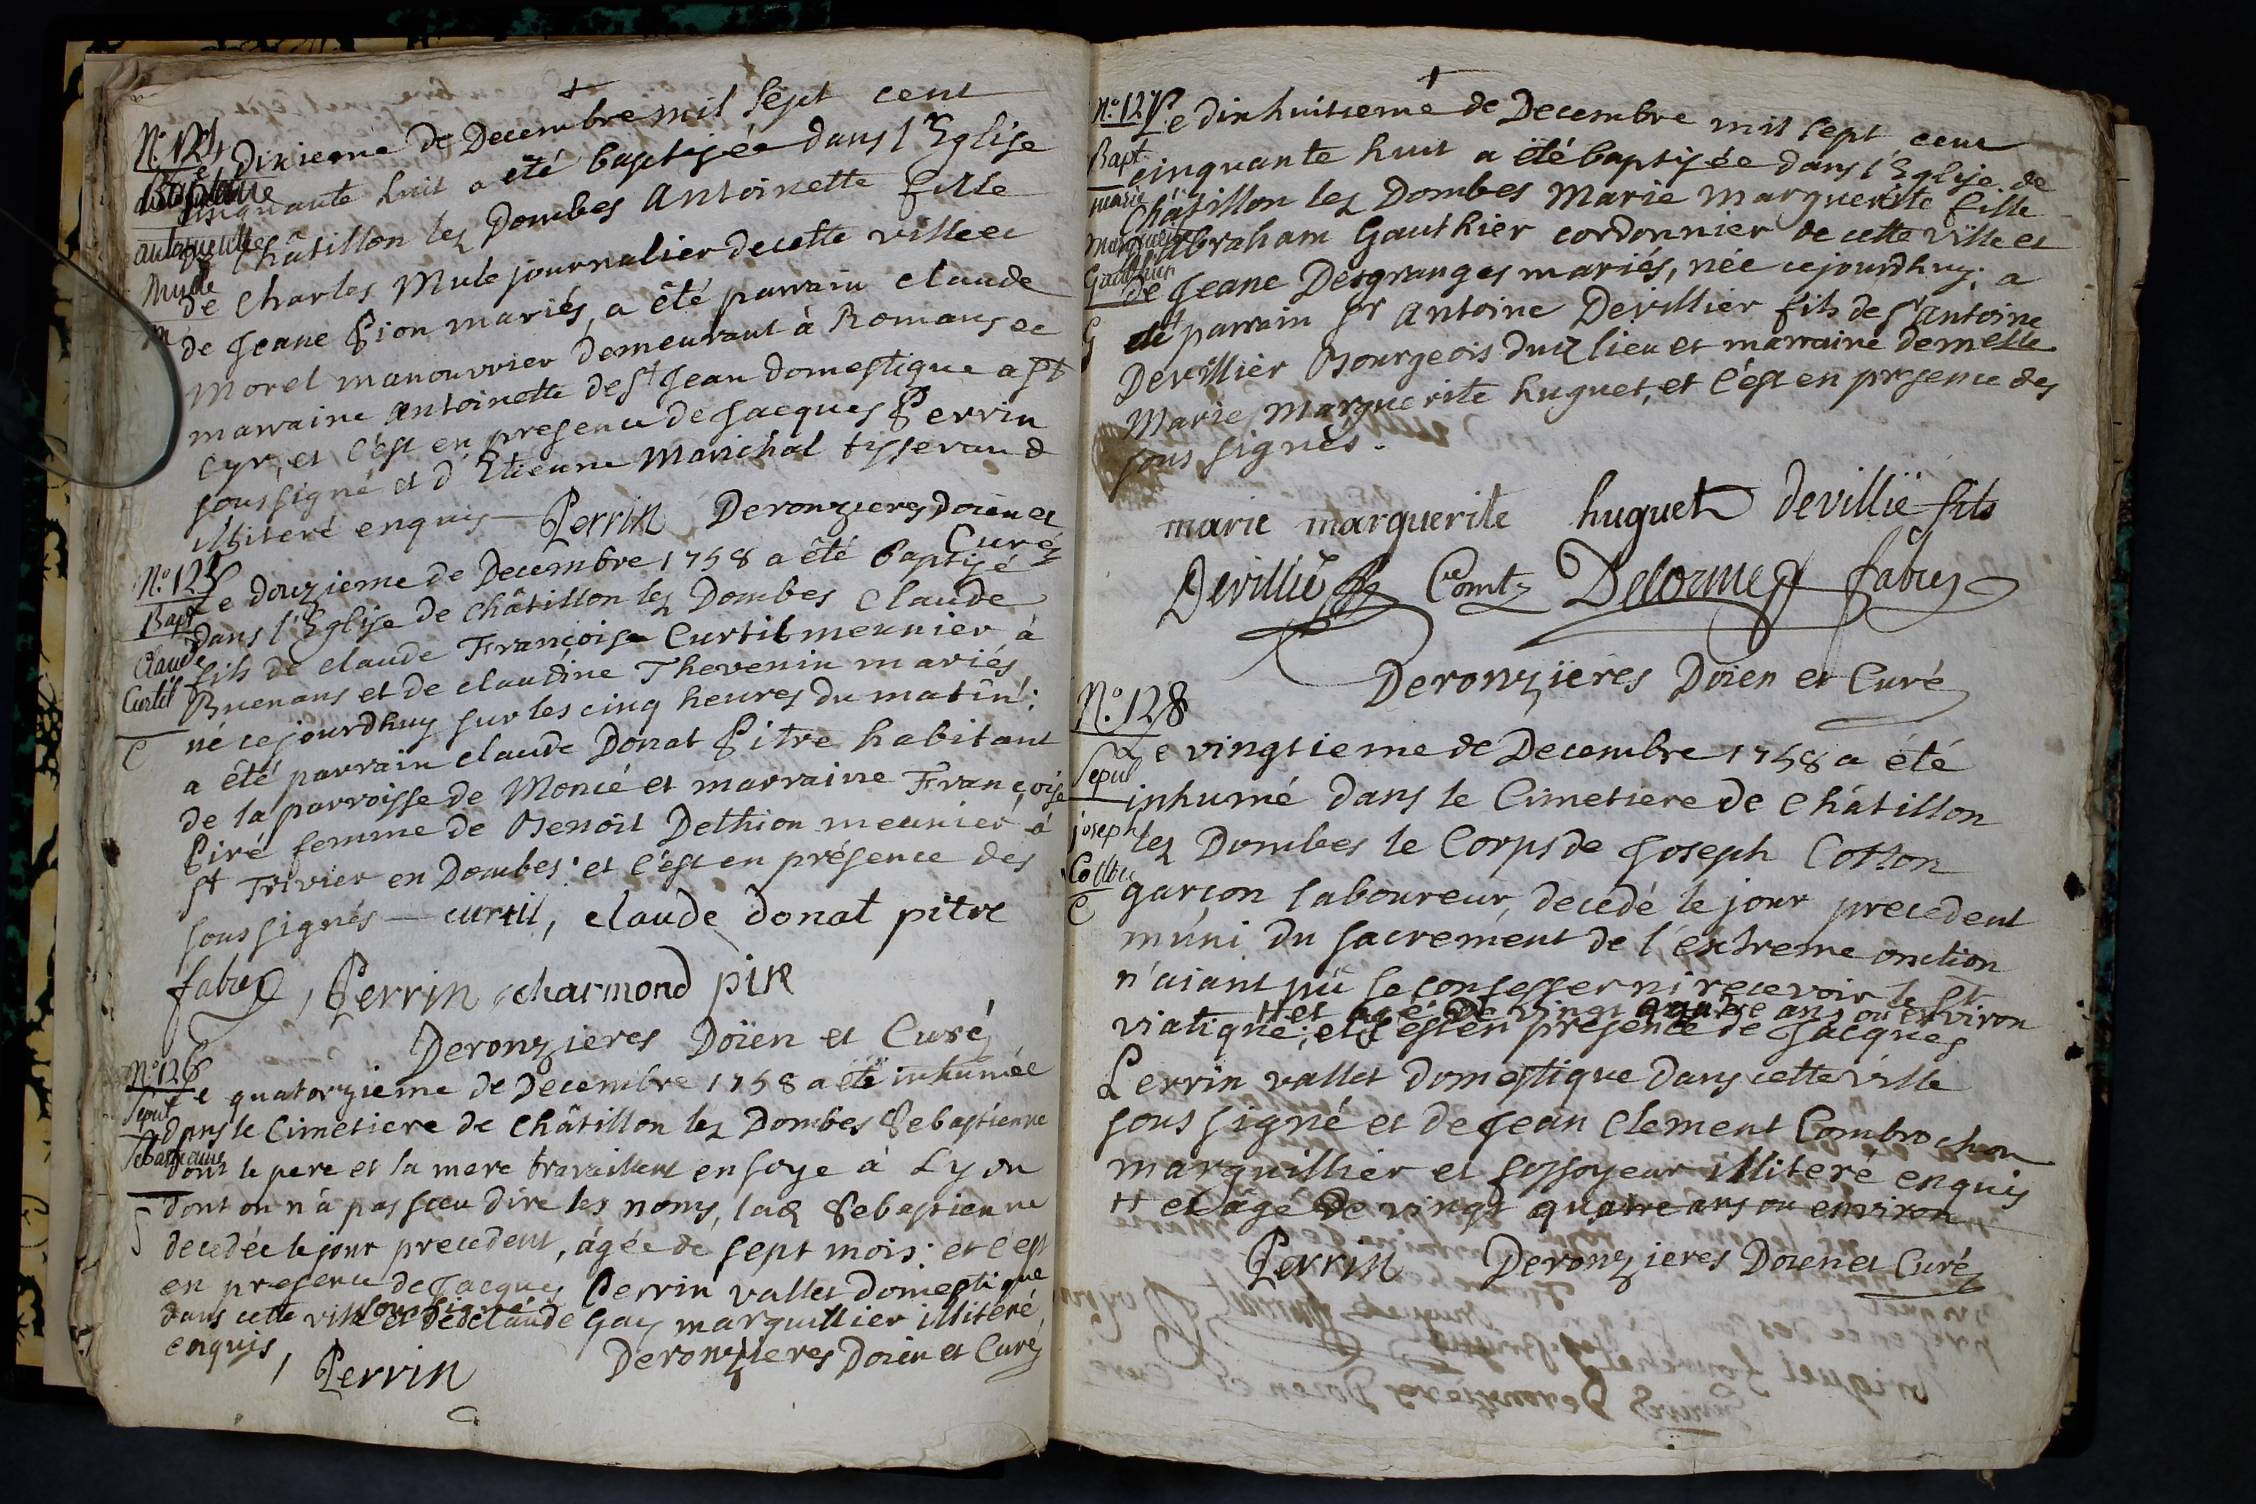 N.º 124
Le dixieme de Decembre mil sept cent
Baptême
cinquante huit a été baptisée dans l'Eglise
de Châtillon lez Dombes Antoinette fille
antoinette
de Charles Mule journalier de cette ville et
Mule
de Jeane Pion mariés, a été parrain claude
M
morel manouvrier demeurant à Romans et
marraine antoinette de st Jean domestique a st
Cyr, et c'est en presence de Jacques Perrin
soussigné et d'Etienne Marichal tisserand
illiteré enquis — Perrin Deronzieres Doien et
Curé
N.º 125
Le douzieme de Decembre 1758 a été baptisé
Bapt
dans l'Eglise de Châtillon lez Dombes Claude
Claude
fils de claude Françoise Curtil meunier à
Curtil
Buenans et de claudine Thevenin mariés
C
né cejourdhuy sur les cinq heures du matin:
a été parrain claude Donat Pitre habitant
de la parroisse de Moncé et marraine Françoise
Piré femme de Benoit Dethion meunier à
st Trivier en Dombes: et c'est en présence des
soussignés — curtil, claude donat pitre
fabry, Perrin charmond pire
Deronzieres Doïen et Curé
N.º 126
Le quatorzieme de Decembre 1758 a été inhumée
Sepul
dans le Cimetiere de Châtillon lez Dombes Sebastienne
Sebastienne
dont le pere et la mere travaillent en soye à Lyon
dont on n'a pas sceu dire les noms, lad Sebastienne
S
decedée le jour precedent, âgée de sept mois: et c'est
en presence de Jacques Perrin vallet domestique
dans cette ville soussigné et de claude Gay marguillier illiteré
enquis, Perrin Deronzieres Doien et Curé
N.º 127
Le dixhuitieme de Decembre mil sept cent
Bapt
cinquante huit a été baptisée dans l'Eglise de
marie
Châtillon lez Dombes Marie Marguerite fille
marguerite
d'Abraham Gauthier cordonnier de cette ville et
Gauthier
de Jeane Desgranges mariés, née cejourdhuy; a
G
été parrain sr Antoine Devillier fils de sr antoine
Devillier Bourgeois dud lieu et marraine demelle
Marie Marguerite huguet, et c'est en presence des
soussignés.
marie marguerite huguet devillië fils
Devillië Comtz Delorme fabry
Deronzieres Doïen et Curé
N.º 128
Le vingtieme de Decembre 1758 a été
Sepul
inhumé dans le Cimetiere de Châtillon
joseph
lez Dombes le Corps de Joseph Collon
Collon
garçon laboureur, decedé le jour precedent
C
muni du sacrement de l'extreme onction
n'aiant pû se confesser ni recevoir le st
H et agé de vingt quatre ans ou environ
viatique; et c'est en presence de Jacques
Perrin vallet domestique dans cette ville
soussigné et de Jean Clement Combrochon
marguillier et fossoyeur illiteré enquis
H et âgé de vingt quatre ans ou environ
Perrin Deronzieres Doien et Curé